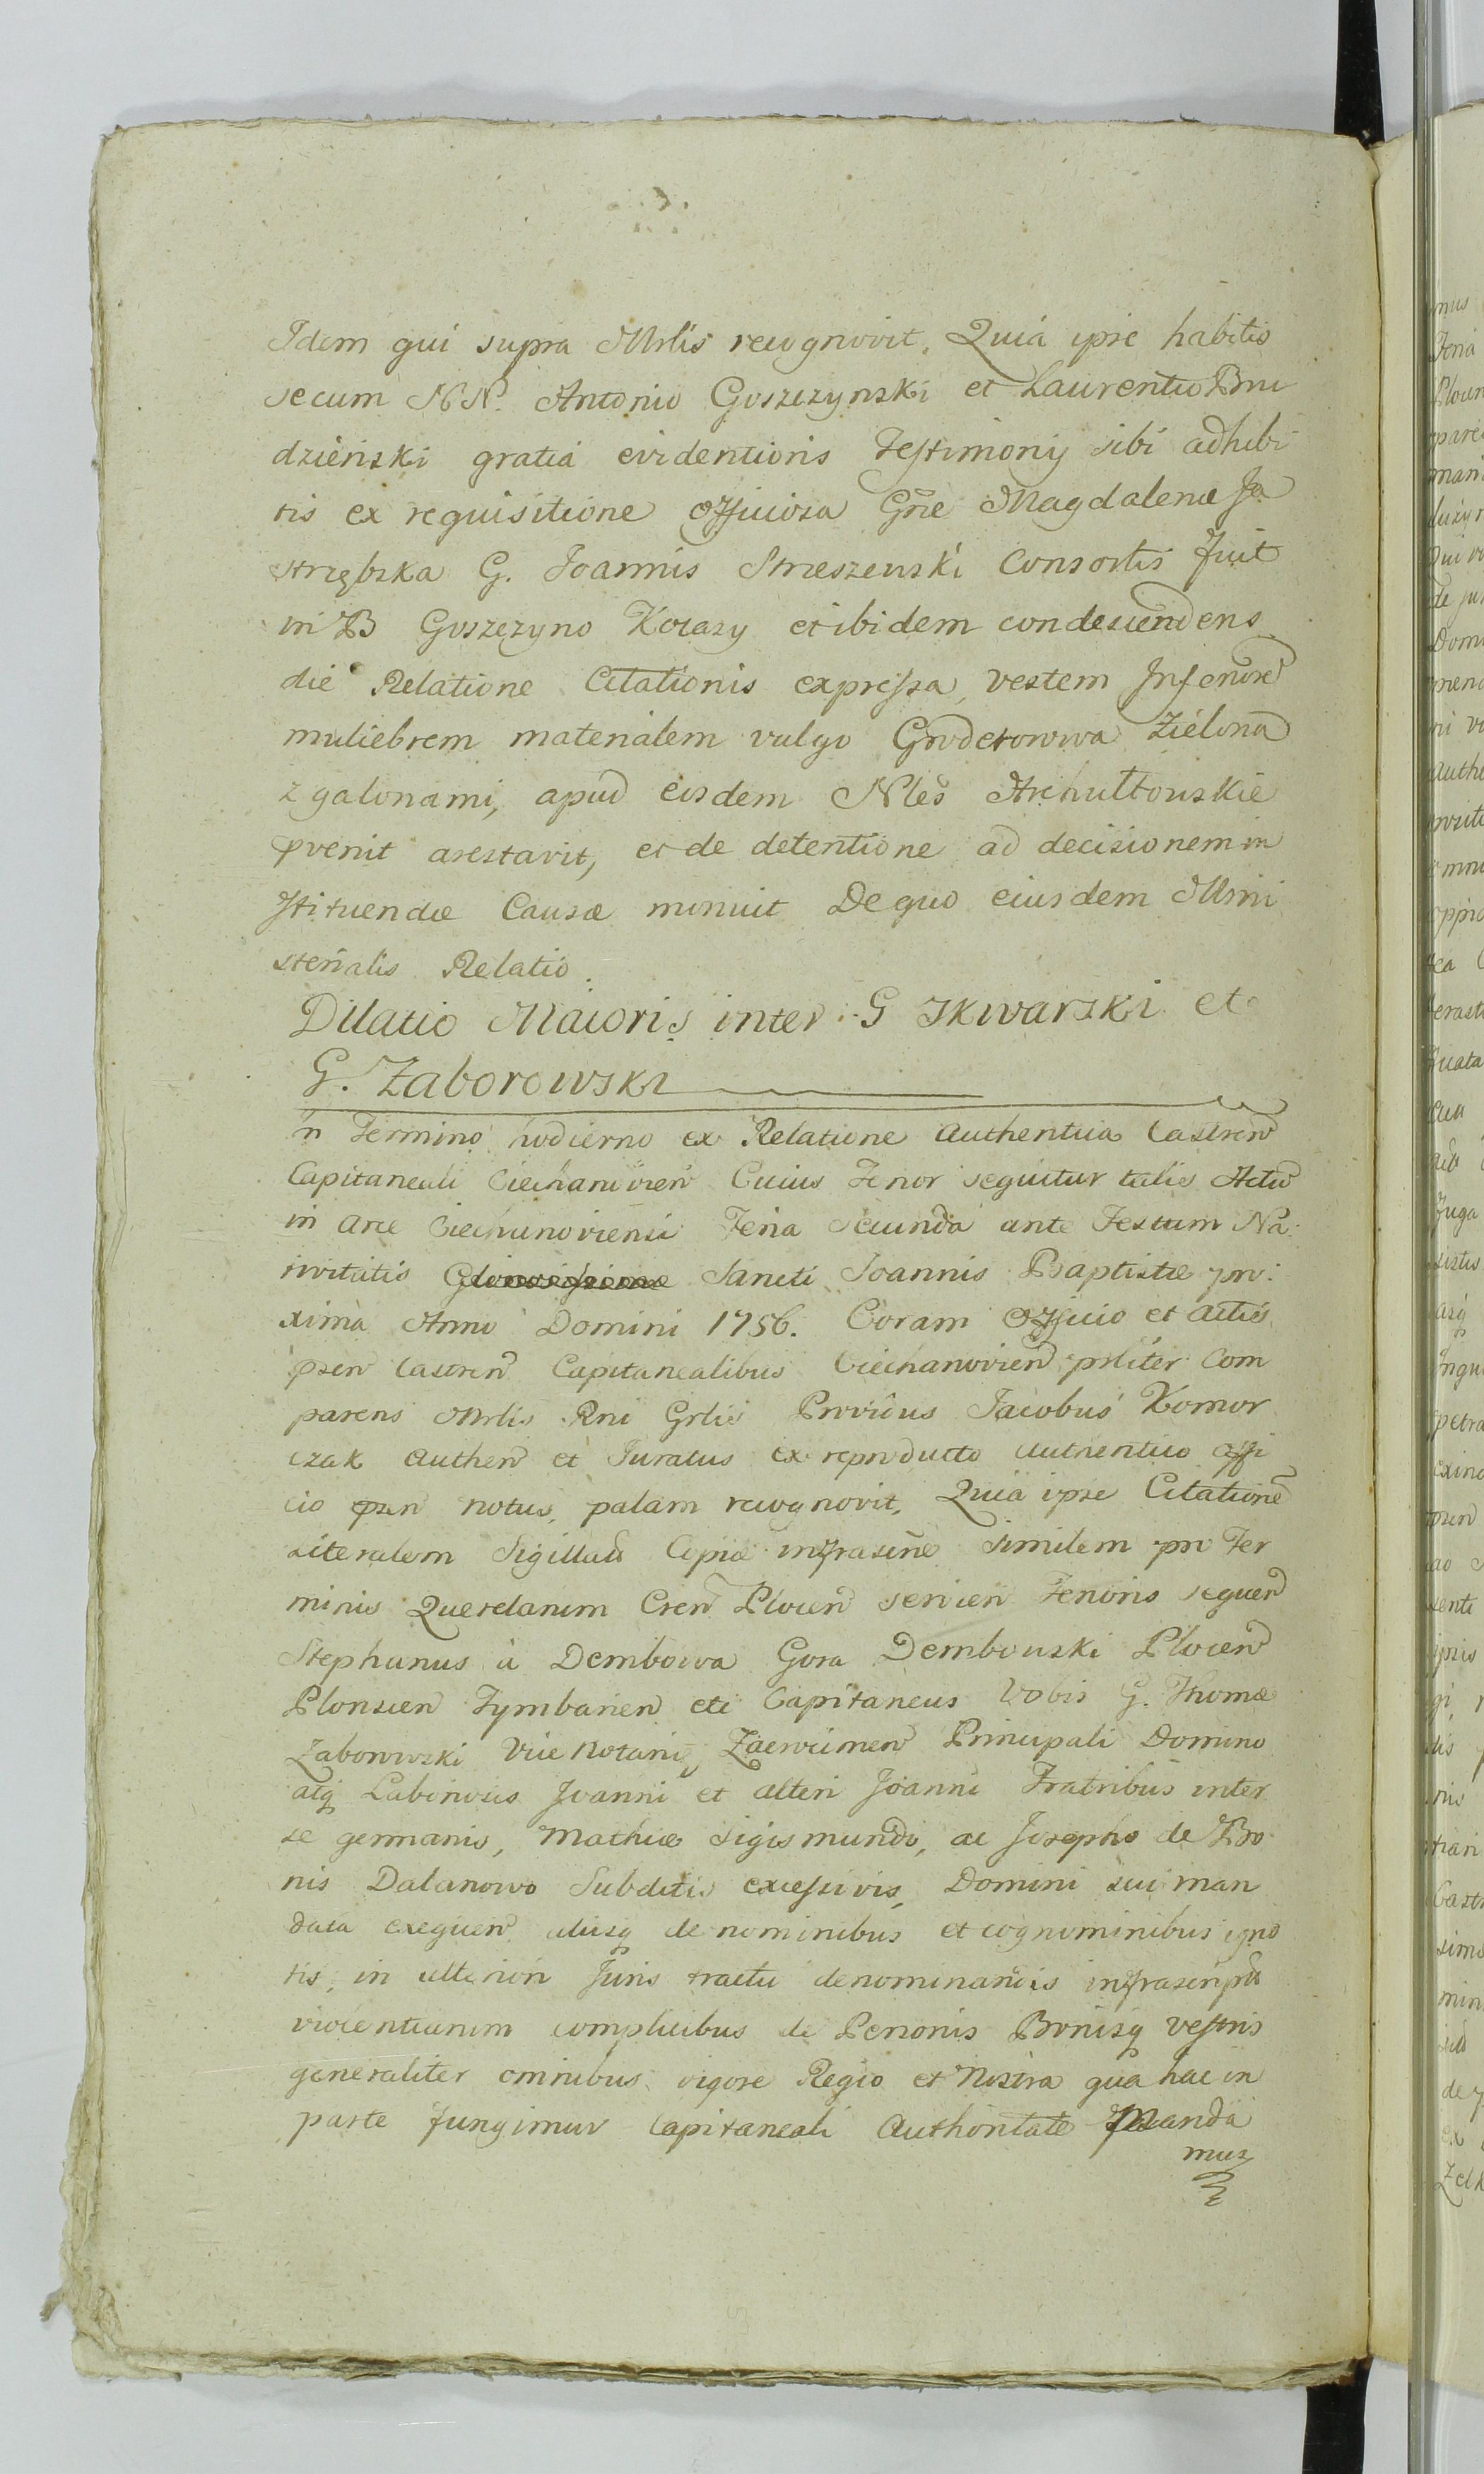 Idem qui supra Mrlis recognovit, Quia ipse habitis
secum NN. Antonio Goszczynski et Laurentio Bru
dzieński gratia evidentioris Testimonij sibi adhibi
tis ex requisitione officiosa Gñe Magdalenæ Ja
strzębska G. Joannis Strzeszenski Consortis Fuit
in B Goszczyno Kozazy et ibidem condescendens
die Relatione Citationis expressa, vestem Inferiorē
muliebrem materialem vulgo Grodetorowa Zielona
z galonami, apud eosdem Nles Archuttouskie
pvenit arestavit, et de detentione ad decisionem in
stituendæ Causæ monuit De quo eiusdem Mini
sterialis Relatio.
Dilatio Maioris inter G Skwarski et
G. Zaborowski
In Termino hodierno ex Relatione Authentica Castren
Capitaneali Ciechanovien Cuius Tenor sequitur talis Actu
in Arce Ciechanoviensi Feria Secunda ante Festum Na:
tivitatis Sancti Joannis Baptistæ pro:
xima Anno Domini 1756. Coram Officio et Actis
psen Castren Capitanealibus Ciechanovien psliter Com
parens Mrlis Rni Grlis Providus Jacobus Komor
czak Authen et Juratus ex reproducto Authentico offi
cio psen notus, palam recognovit, Quia ipse Citationē
literalem Sigillatā Copiæ infrascñe Similem pro Ter
minis Querelarum Cren Plocen servien Tenoris sequen
Stephanus à Dembowa Gora Dembouski Plocen
Plonscen Tymbarien etc Capitaneus Vobis G. Thomæ
Zaborowski Vice Notario, Zaewrimen Principali Domino
atq Laboriosis Joanni et alteri Joanni Fratribus inter
se germanis, Mathiæ Sigismundo, ac Josepho de Bo
nis Dalanowo Subditis excessivis, Domini sui man
data exequen aliisq de nominibus et cognominibus igno
tis, in ulteriori Juris tractu denominandis infrascripta
violentiarum complicibus de Personis Bonisq vestris
generaliter omnibus, vigore Regio et Nostra qua hac in
parte fungimur Capitaneali Authoritate Manda
mus